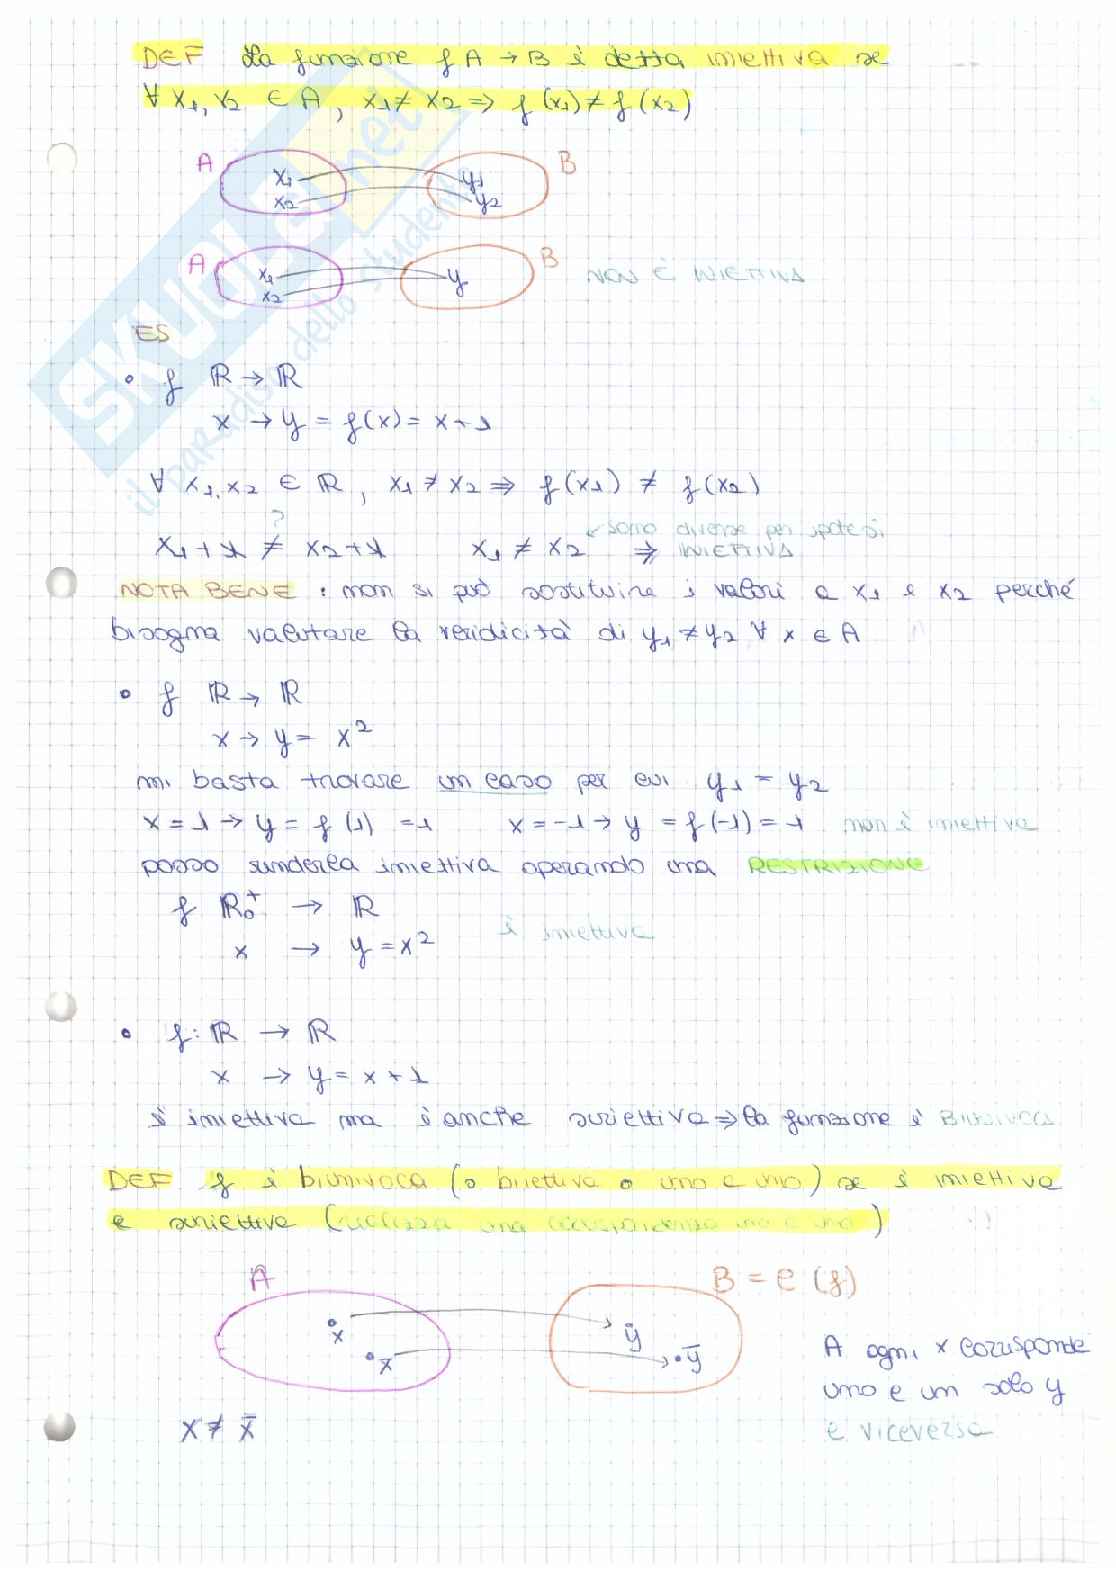 DEF La funzione f A → B è detta iniettiva se
∀ x1, x2 ∈ A, x1 ≠ x2 ⇒ f(x1) ≠ f(x2)
A x1 x2 y1 y2 B
A x1 x2 y B NON È INIETTIVA
ES
• f ℝ → ℝ
x → y = f(x) = x + 1
∀ x1, x2 ∈ ℝ, x1 ≠ x2 ⇒ f(x1) ≠ f(x2)
?
← sono diverse per ipotesi
x1 + 1 ≠ x2 + 1 x1 ≠ x2 ⇒ INIETTIVA
NOTA BENE : non si può sostituire i valori a x1 e x2 perché
bisogna valutare la veridicità di y1 ≠ y2 ∀ x ∈ A
• f ℝ → ℝ
x → y = x²
mi basta trovare un caso per cui y1 = y2
x = 1 → y = f(1) = 1 x = -1 → y = f(-1) = 1 non è iniettiva
posso renderla iniettiva operando una RESTRIZIONE
f ℝ₀⁺ → ℝ
x → y = x² è iniettiva
• f: ℝ → ℝ
x → y = x + 1
è iniettiva ma è anche suriettiva ⇒ la funzione è BIUNIVOCA
DEF f è biunivoca (o biiettiva o uno a uno) se è iniettiva
e suriettiva (realizza una corrispondenza uno a uno)
A B = C (f)
x y
x̄ ȳ
A ogni x corrisponde
uno e un solo y
e viceversa
x ≠ x̄
SKUOLA.net
il paradiso dello studente